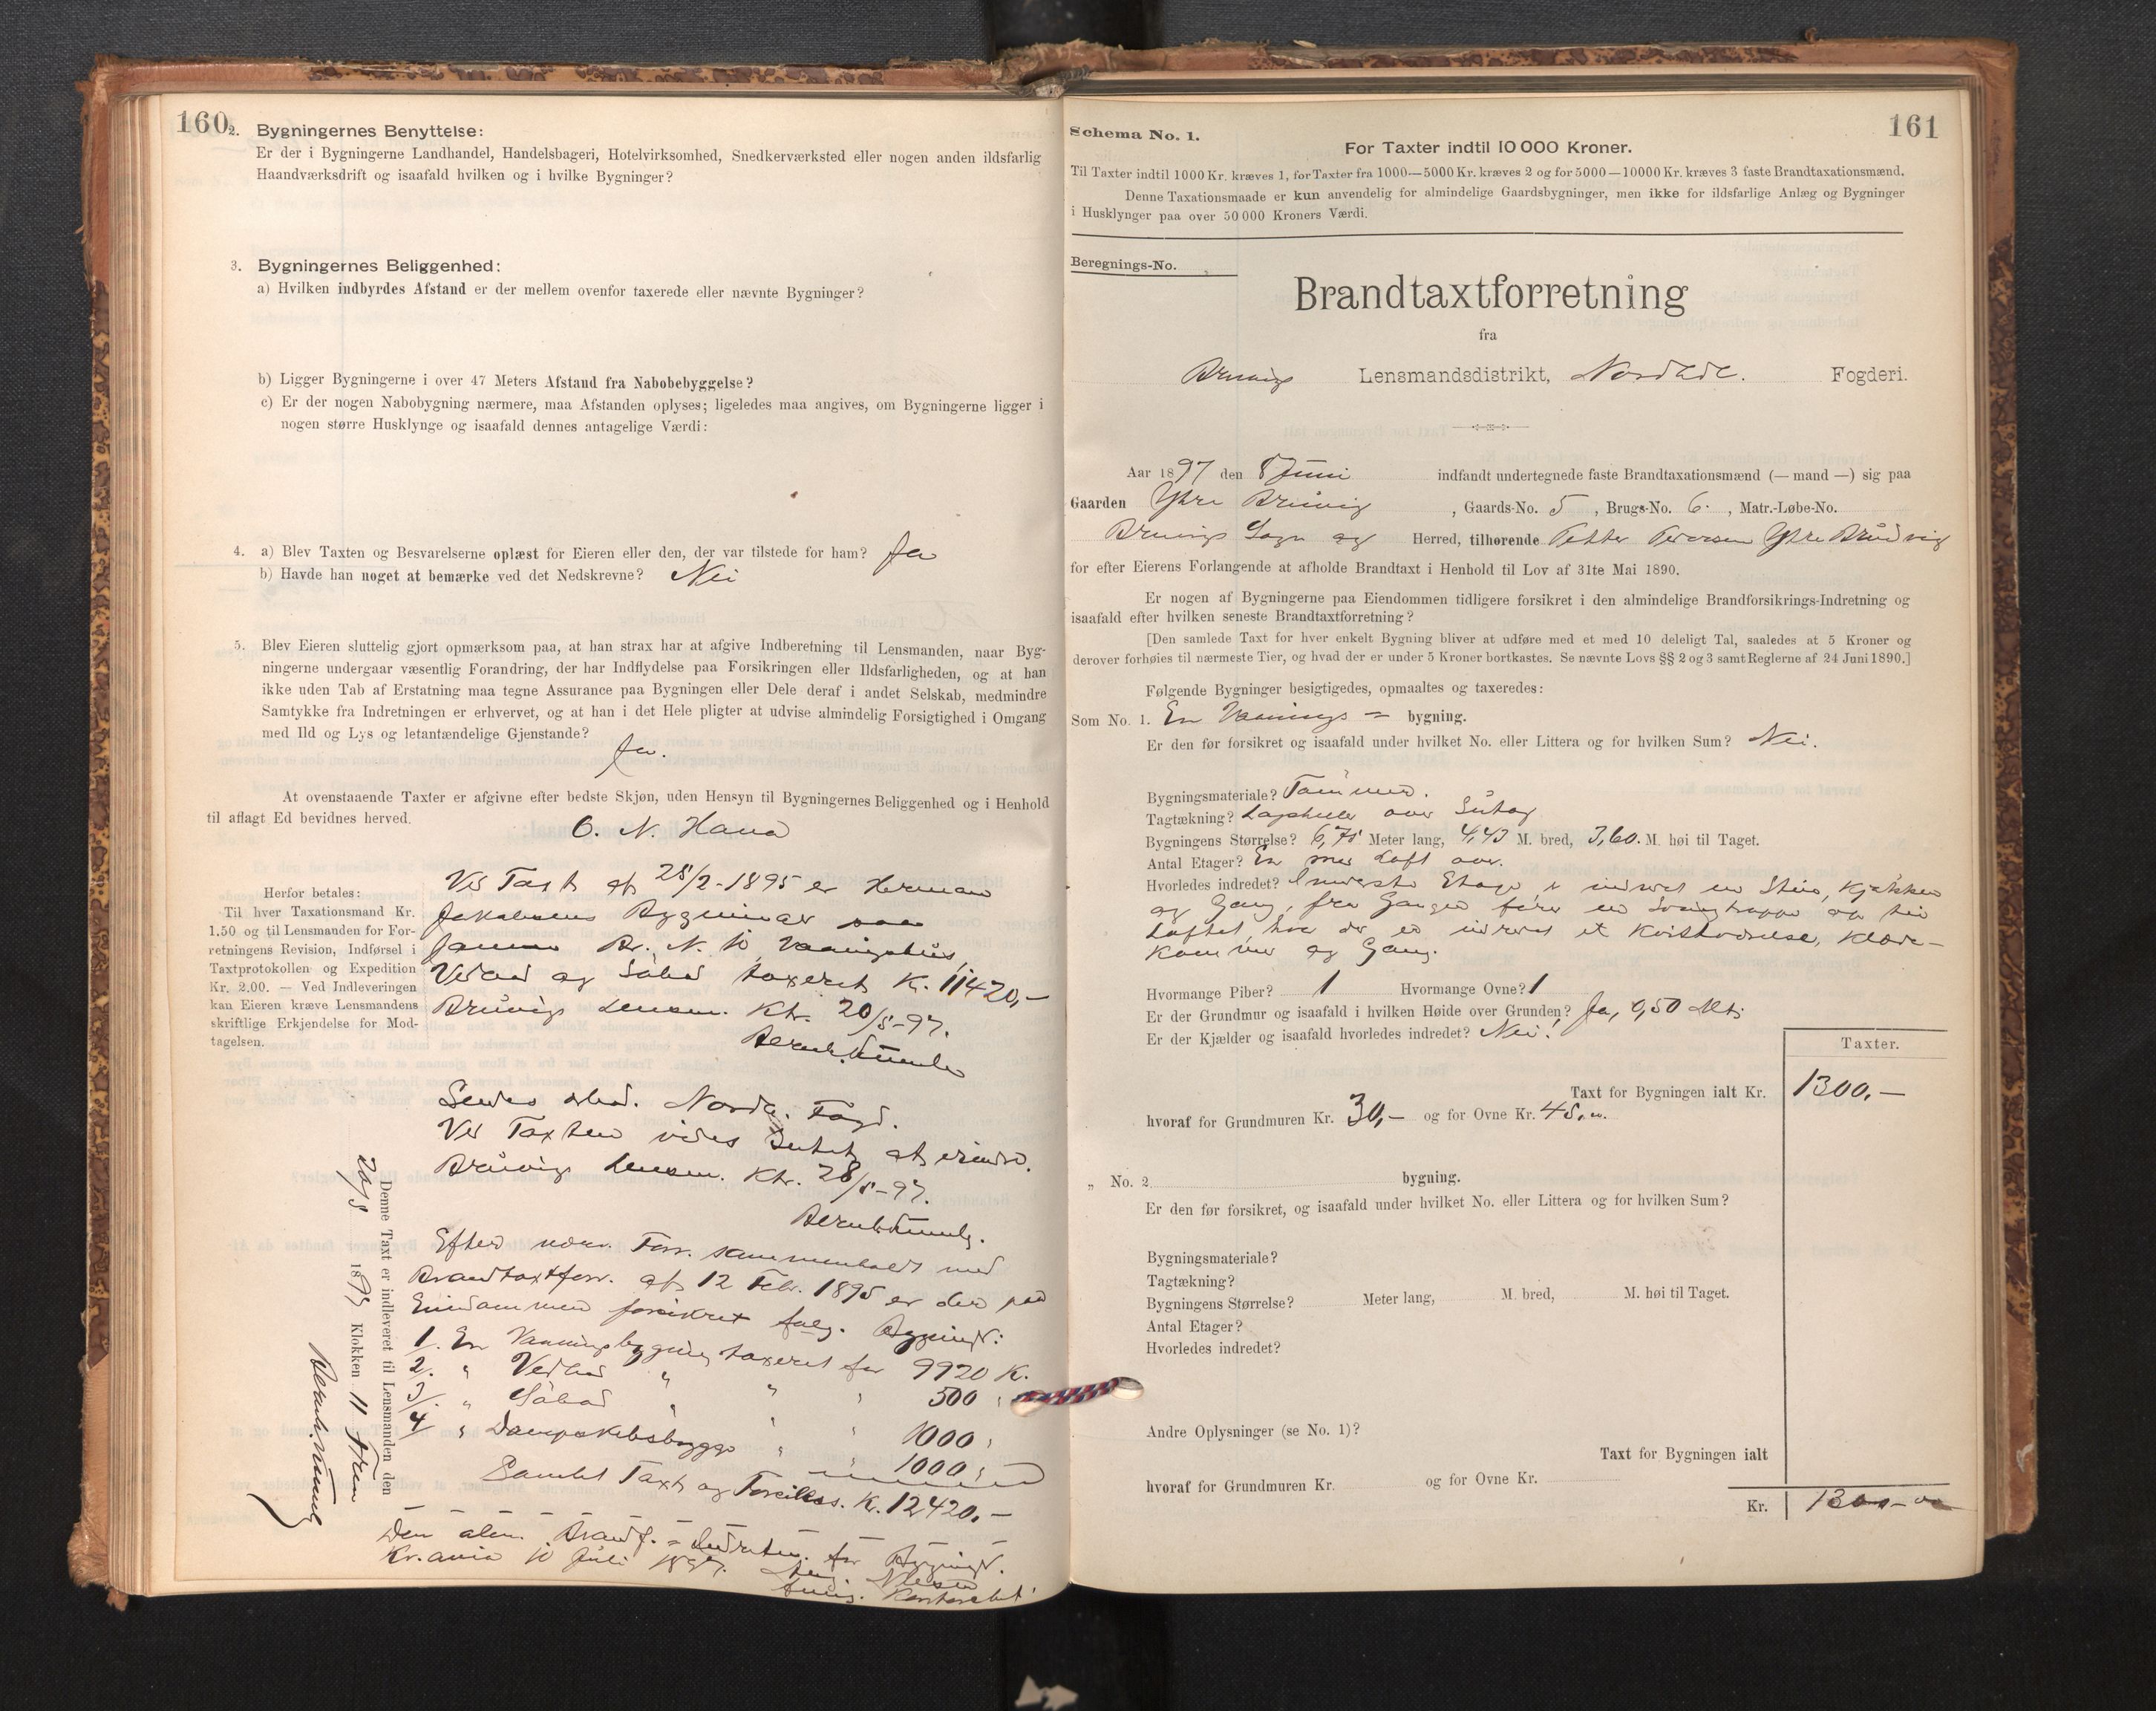 160
2. Bygningernes Benyttelse:
Er der i Bygningerne Landhandel, Handelsbageri, Hotelvirksomhed, Snedkerværksted eller nogen anden ildsfarlig
Haandværksdrift og isaafald hvilken og i hvilke Bygninger?
3. Bygningernes Beliggenhed:
a) Hvilken indbyrdes Afstand er der mellem ovenfor taxerede eller nævnte Bygninger?
b) Ligger Bygningerne i over 47 Meters Afstand fra Nabobebyggelse?
c) Er der nogen Nabobygning nærmere, maa Afstanden oplyses; ligeledes maa angives, om Bygningerne ligger i
nogen større Husklynge og isaafald dennes antagelige Værdi:
4. a) Blev Taxten og Besvarelserne oplæst for Eieren eller den, der var tilstede for ham? Ja
b) Havde han noget at bemærke ved det Nedskrevne? Nei
5. Blev Eieren sluttelig gjort opmærksom paa, at han strax har at afgive Indberetning til Lensmanden, naar Byg-
ningerne undergaar væsentlig Forandring, der har Indflydelse paa Forsikringen eller Ildsfarligheden, og at han
ikke uden Tab af Erstatning maa tegne Assurance paa Bygningen eller Dele deraf i andet Selskab, medmindre
Samtykke fra Indretningen er erhvervet, og at han i det Hele pligter at udvise almindelig Forsigtighed i Omgang
med Ild og Lys og letantændelige Gjenstande?
Ja.
At ovenstaaende Taxter er afgivne efter bedste Skjøn, uden Hensyn til Bygningernes Beliggenhed og i Henhold
til aflagt Ed bevidnes herved.
O. N. Hana
Herfor betales:
Til hver Taxationsmand Kr.
1.50 og til Lensmanden for For-
retningens Revision, Indførsel i
Taxtprotokollen og Expedition
Kr. 2.00. — Ved Indleveringen
kan Eieren kræve Lensmandens
skriftlige Erkjendelse for Mod-
tagelsen.
Ved Taxt af 28/2-1895 er Herman
Jakobsens Bygninger paa
samme Br. N. 10, Vaaningshus,
Vedhus og Søbod taxeret Kr. 11420,-
Bruvigs Lensm. Ktr. 20/5-97.
Sendes Nordh. Fogd.
Ved Taxten vides Intet at erindre.
Bruvigs Lensm. Ktr. 28/5-97.
Efter nærv. Forr. sammenholdt med
Brandtaxtforr. af 12 Febr. 1895 er der paa
Eiendommen forsikret følg. Bygningr:
1. En Vaaningsbygning taxeret for 9920 K.
2. " Vedhus " " 500 "
3. " Søbod " " " 1000 "
4 " Dampskibsbrygge " " 1000 "
Samlet Taxt og Forsikrs. Kr. 12,420,-
Den alm. Brandf.-Indretn. for Bygningr.
Kr.ania 10 Juli 1897.
Denne Taxt er indleveret til Lensmanden den
20/5 1897 Klokken 11 Frm
161
Schema No. 1.
For Taxter indtil 10 000 Kroner.
Til Taxter indtil 1000 Kr. kræves 1, for Taxter fra 1000—5000 Kr. kræves 2 og for 5000—10000 Kr. kræves 3 faste Brandtaxationsmænd.
Denne Taxationsmaade er kun anvendelig for almindelige Gaardsbygninger, men ikke for ildsfarlige Anlæg og Bygninger
i Husklynger paa over 50 000 Kroners Værdi.
Beregnings-No.
Brandtaxtforretning
fra
Bruvigs Lensmandsdistrikt, Nordhdl. Fogderi.
Aar 1897 den 8 Juni indfandt undertegnede faste Brandtaxationsmænd (— mand —) sig paa
Gaarden Ytre Bruvig, Gaards-No. 5, Brugs-No. 6., Matr.-Løbe-No.
Bruvigs Sogn og Herred, tilhørende Petter Pedersen Ytre Bruvig
for efter Eierens Forlangende at afholde Brandtaxt i Henhold til Lov af 31te Mai 1890.
Er nogen af Bygningerne paa Eiendommen tidligere forsikret i den almindelige Brandforsikrings-Indretning og
isaafald efter hvilken seneste Brandtaxtforretning?
[Den samlede Taxt for hver enkelt Bygning bliver at udføre med et med 10 deleligt Tal, saaledes at 5 Kroner og
derover forhøies til nærmeste Tier, og hvad der er under 5 Kroner bortkastes. Se nævnte Lovs §§ 2 og 3 samt Reglerne af 24 Juni 1890.]
Følgende Bygninger besigtigedes, opmaaltes og taxeredes:
Som No. 1. En Vaanings = bygning.
Er den før forsikret og isaafald under hvilket No. eller Littera og for hvilken Sum? Nei.
Bygningsmateriale? Tømmer.
Tagtækning? Lapheller over Sutag
Bygningens Størrelse? 6,75 Meter lang, 4,43 M. bred, 3,60. M. høi til Taget.
Antal Etager? En med Loft over.
Hvorledes indredet? Inderste Etage er indredet en Stue, Kjøkken
og Gang, fra Gangen fører en Svingtrappe op til
Loftet, hvor der er indredet et Kvistværelse, Klæde-
kammer og Gang.
Hvormange Piber? 1 Hvormange Ovne? 1
Er der Grundmur og isaafald i hvilken Høide over Grunden? Ja, 0,50 Mtr.
Er der Kjælder og isaafald hvorledes indredet? Nei!
Taxter.
Taxt for Bygningen ialt Kr. 1300,-
hvoraf for Grundmuren Kr. 30,- og for Ovne Kr. 45,00.
„ No. 2 bygning.
Er den før forsikret, og isaafald under hvilket No. eller Littera og for hvilken Sum?
Bygningsmateriale?
Tagtækning?
Bygningens Størrelse? Meter lang, M. bred, M. høi til Taget.
Antal Etager?
Hvorledes indredet?
Andre Oplysninger (se No. 1)?
Taxt for Bygningen ialt
hvoraf for Grundmuren Kr. og for Ovne Kr.
Kr. 1300-00